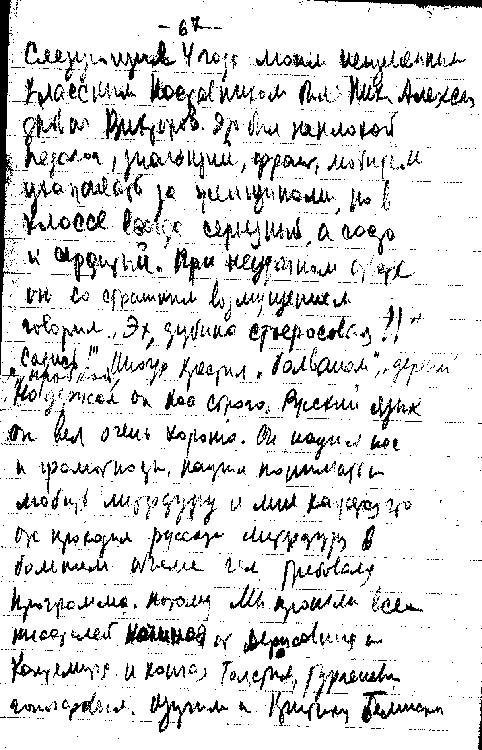 - 67 -
Следующие 4 года моим неизменным
классным наставником был Ник. Алексан
дрович Викторов. Это был неплохой
педагог, знающий, франт, любител
ухаживать за женщинами, но в
классе всегда серьезный, а часто
и сердитый. При неудачном ответе
он со страшным возмущением
говорил „Эх, дубина стоеросовая!!"
садись!" Иногда крестил „болваном", „дерев
Но держал он нас строго. Русский язык
он вел очень хорошо. Он научил нас
и грамотности, научил понимать и
любить литературу и мне кажется что
он проходил русскую литературу в
большем объеме чем требовала
программа. Потому мы прошли всех
писателей начиная от Державина и
Кантемира и кончая Толстым, Тургеневым
Гончаровым. Изучили и критику Белинско